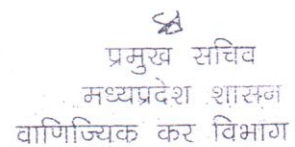 प्रमुख सचिव
मध्यप्रदेश शासन
वाणिज्यिक कर विभाग